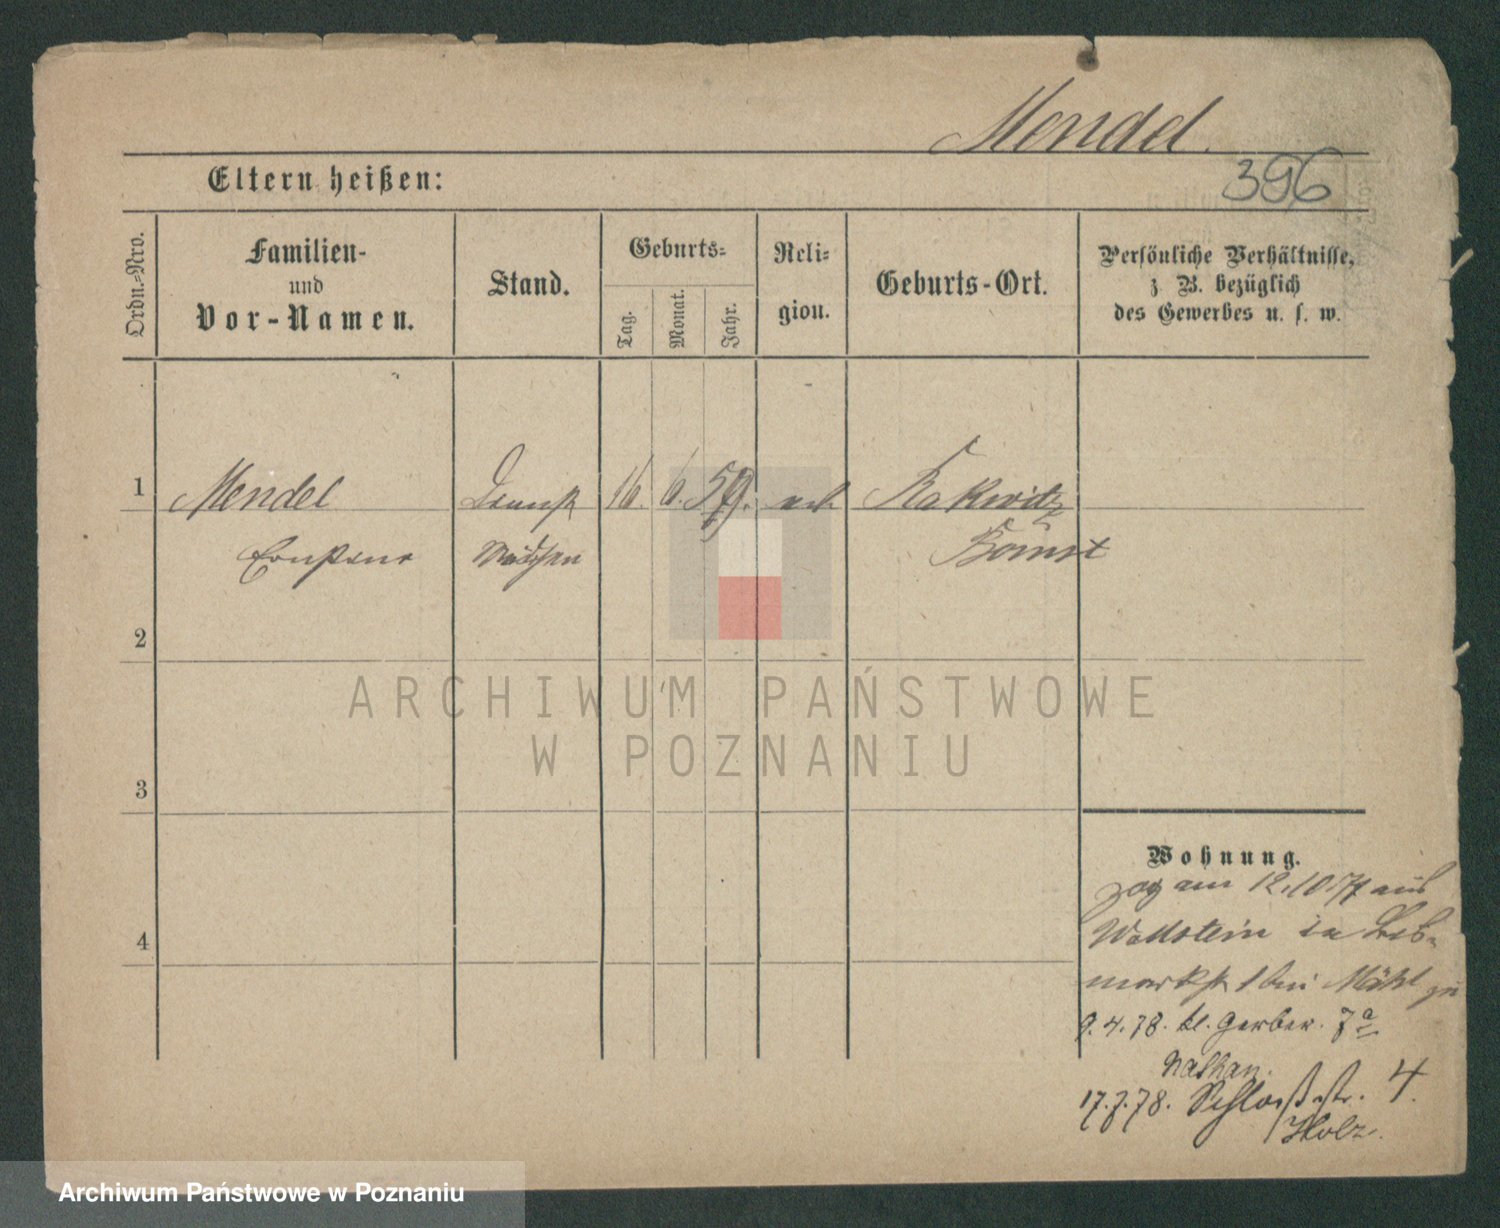 Mendel.
396
Eltern heißen:
Ordn.-Nro.
Familien-
und
Vor-Namen.
Stand.
Geburts-
Tag.
Monat.
Jahr.
Reli-
gion.
Geburts-Ort.
Persönliche Verhältnisse,
z. B. bezüglich
des Gewerbes u. s. w.
1 Mendel Dienst 16. 6. 59. Rakwitz
Ernstine Mädchen Bomst
2
3
4
ARCHIWUM PAŃSTWOWE
W POZNANIU
Wohnung.
zog am 12.10.77 aus
Wollstein
markt 1 bei zu
9.4.78. kl. Gerber. 7a
Nathan.
17.7.78. Schloßstr. 4.
Holz.
Archiwum Państwowe w Poznaniu